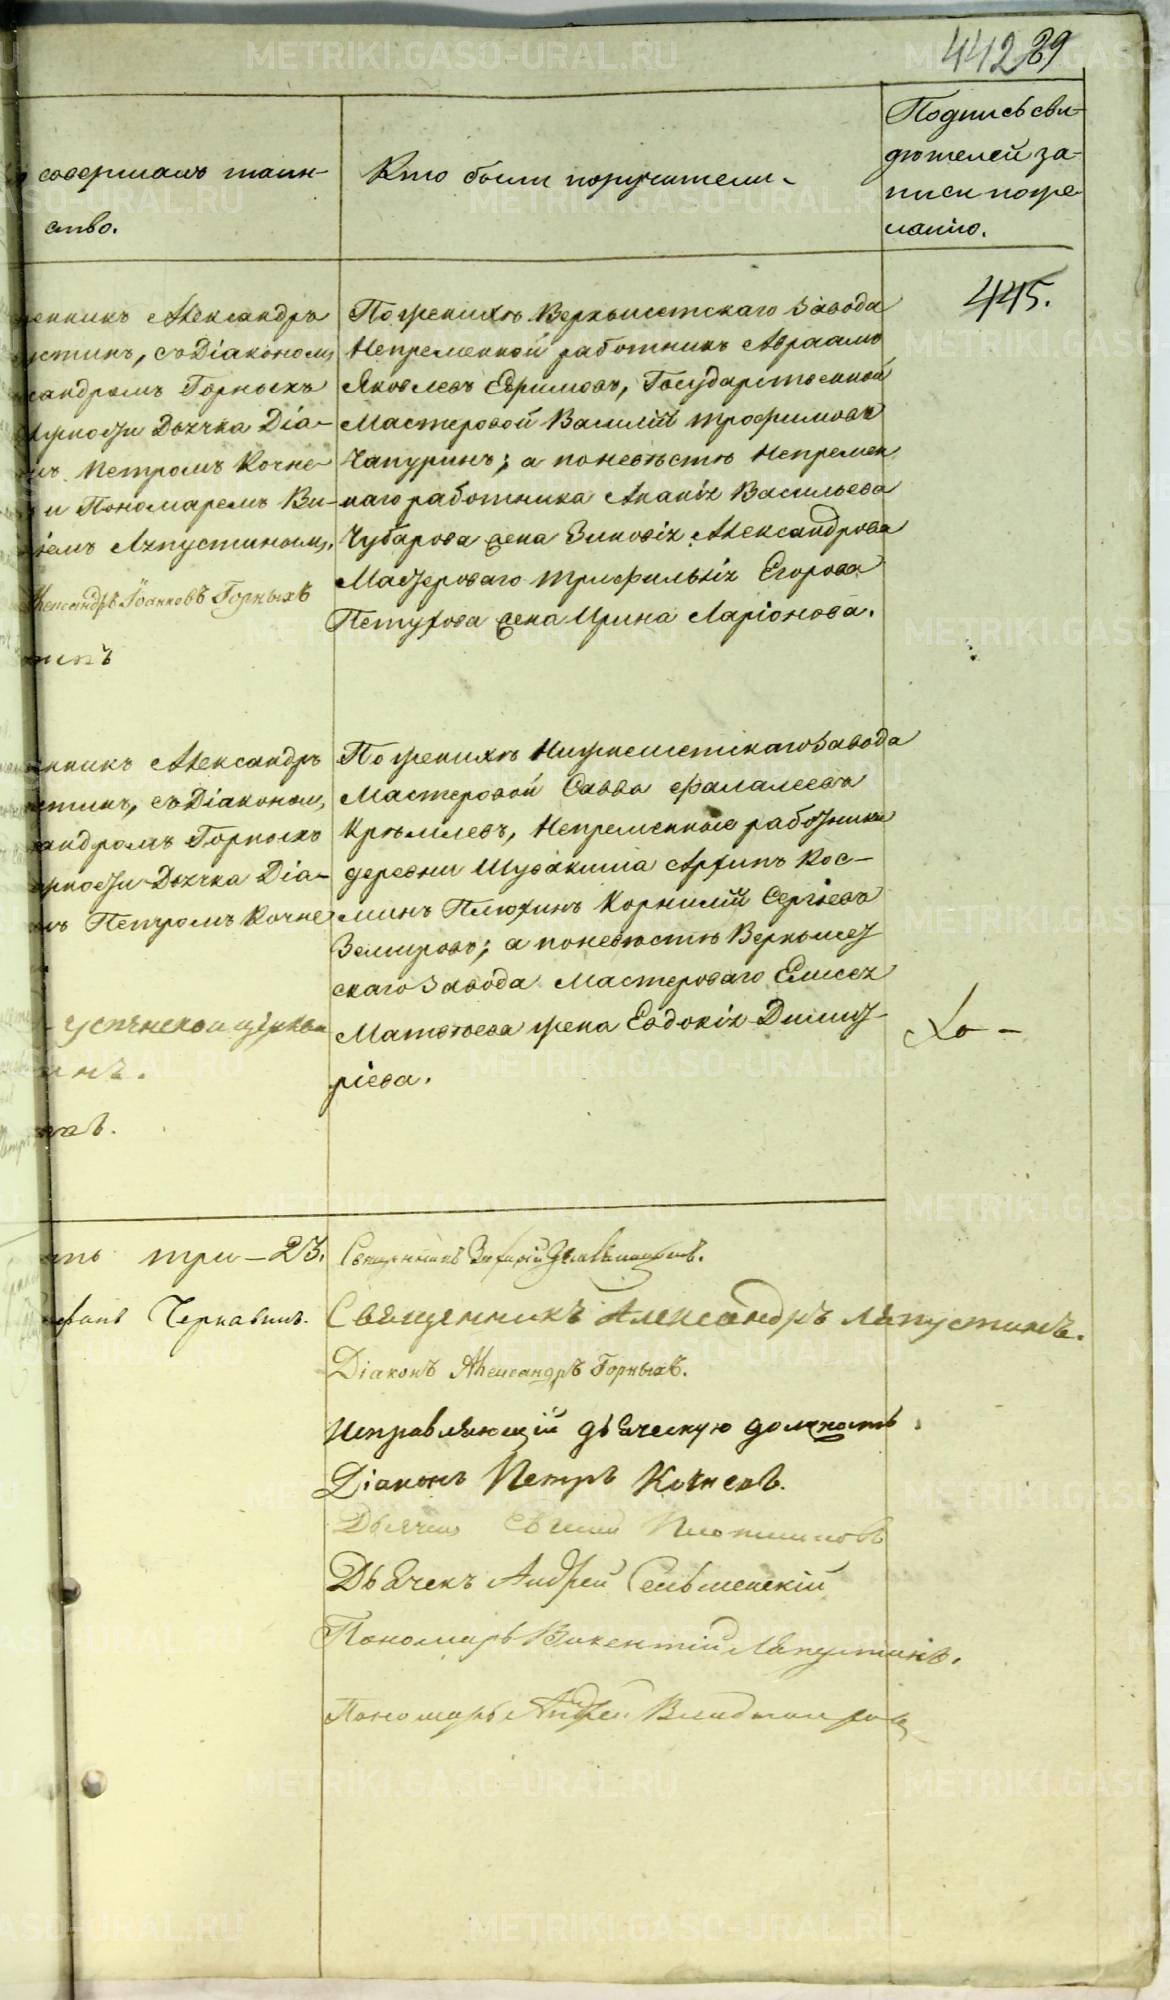 442 89
совершалъ таин-
ство.
Кто были поручители.
Подпись сви-
дѣтелей за-
писи по же-
ланію.
445.
Александръ
съ Діакономъ
Горныхъ
Дьячка Діа-
Петромъ Кочне-
и Пономаремъ Ви-
Лапустинымъ.
Александръ Іоанновъ Горныхъ
По женихѣ Верхъисетскаго Завода
Непременной работникъ Авраамъ
Яковлевъ Ефимовъ, Государственной
Мастеровой Василій Трофимовъ
Чапуринъ; а по невѣстѣ Непремен
наго работника Ананія Васильева
Чубарова жена Зиновія Александрова
Мастероваго Трифилія Егорова
Петухова жена Ирина Ларіонова.
Александръ
съ Діакономъ
Горныхъ
Дьячка Діа-
Петромъ Кочне
По женихѣ Нижнеисетскаго Завода
Мастеровой Савва Фалалеевъ
Непременные работники
деревни Шувакиша Архипъ Кос-
минъ Плюхинъ Корнилій Сергѣевъ
Земировъ; а по невѣстѣ Верхъисет
скаго Завода Мастероваго Елисея
Матвѣева жена Евдокія Димит
ріева.
три - 23.
Чернавинъ.
Священникъ
Священникъ Александръ Лапустинъ.
Діаконъ Александръ Горныхъ.
Исправляющій дьяческую должность
Діаконъ Петръ Кочневъ.
Дьячекъ Евгеній Плотниковъ
Дьячекъ Андрей Сельменскій
Пономарь Викентій Лапустинъ.
Пономарь Андрей